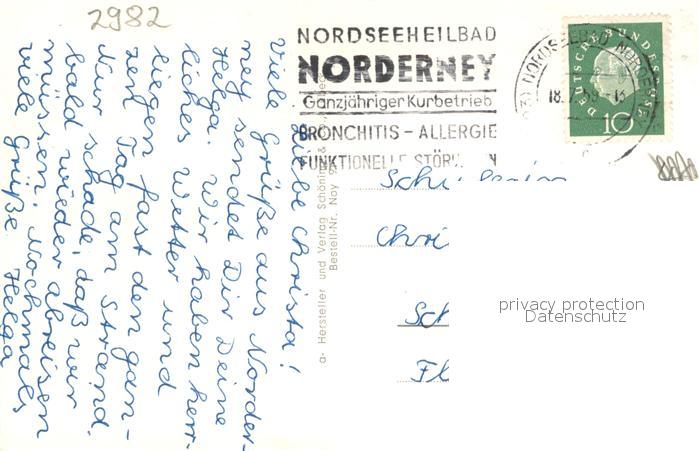 2982
NORDSEEHEILBAD
NORDERNEY
Ganzjähriger Kurbetrieb
BRONCHITIS – ALLERGIE
FUNKTIONELLE
NORDSEEBAD
DEUTSCHE BUNDESPOST
10
Liebe Christa!
Viele Grüße aus Norder-
ney sendet Dir Deine
Helga. Wir haben herr-
liches Wetter und
liegen fast den gan-
zen Tag am Strand.
Nur schade, daß wir
bald wieder abreisen
müssen. Nochmals
viele Grüße Helga
a- Hersteller und Verlag Schöning &
Bestell-Nr. Noy
Schülerin
Chri
Sch
Fl
privacy protection
Datenschutz